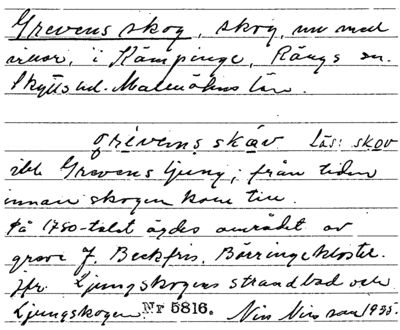 Grevens skog, skog, nu med
villor, i Kämpinge, Rängs sn.
Skytts hd. Malmöhus län.
grèvens skåv läs: skov
ibl Grevens ljung; från tiden
innan skogen kom till.
På 1750-talet ägdes området av
greve J. Beckfris, Börringekloster.
jfr. Ljungskogens strandbad och
Ljungskogen Nr 5816. Nils Nilsson 1935.